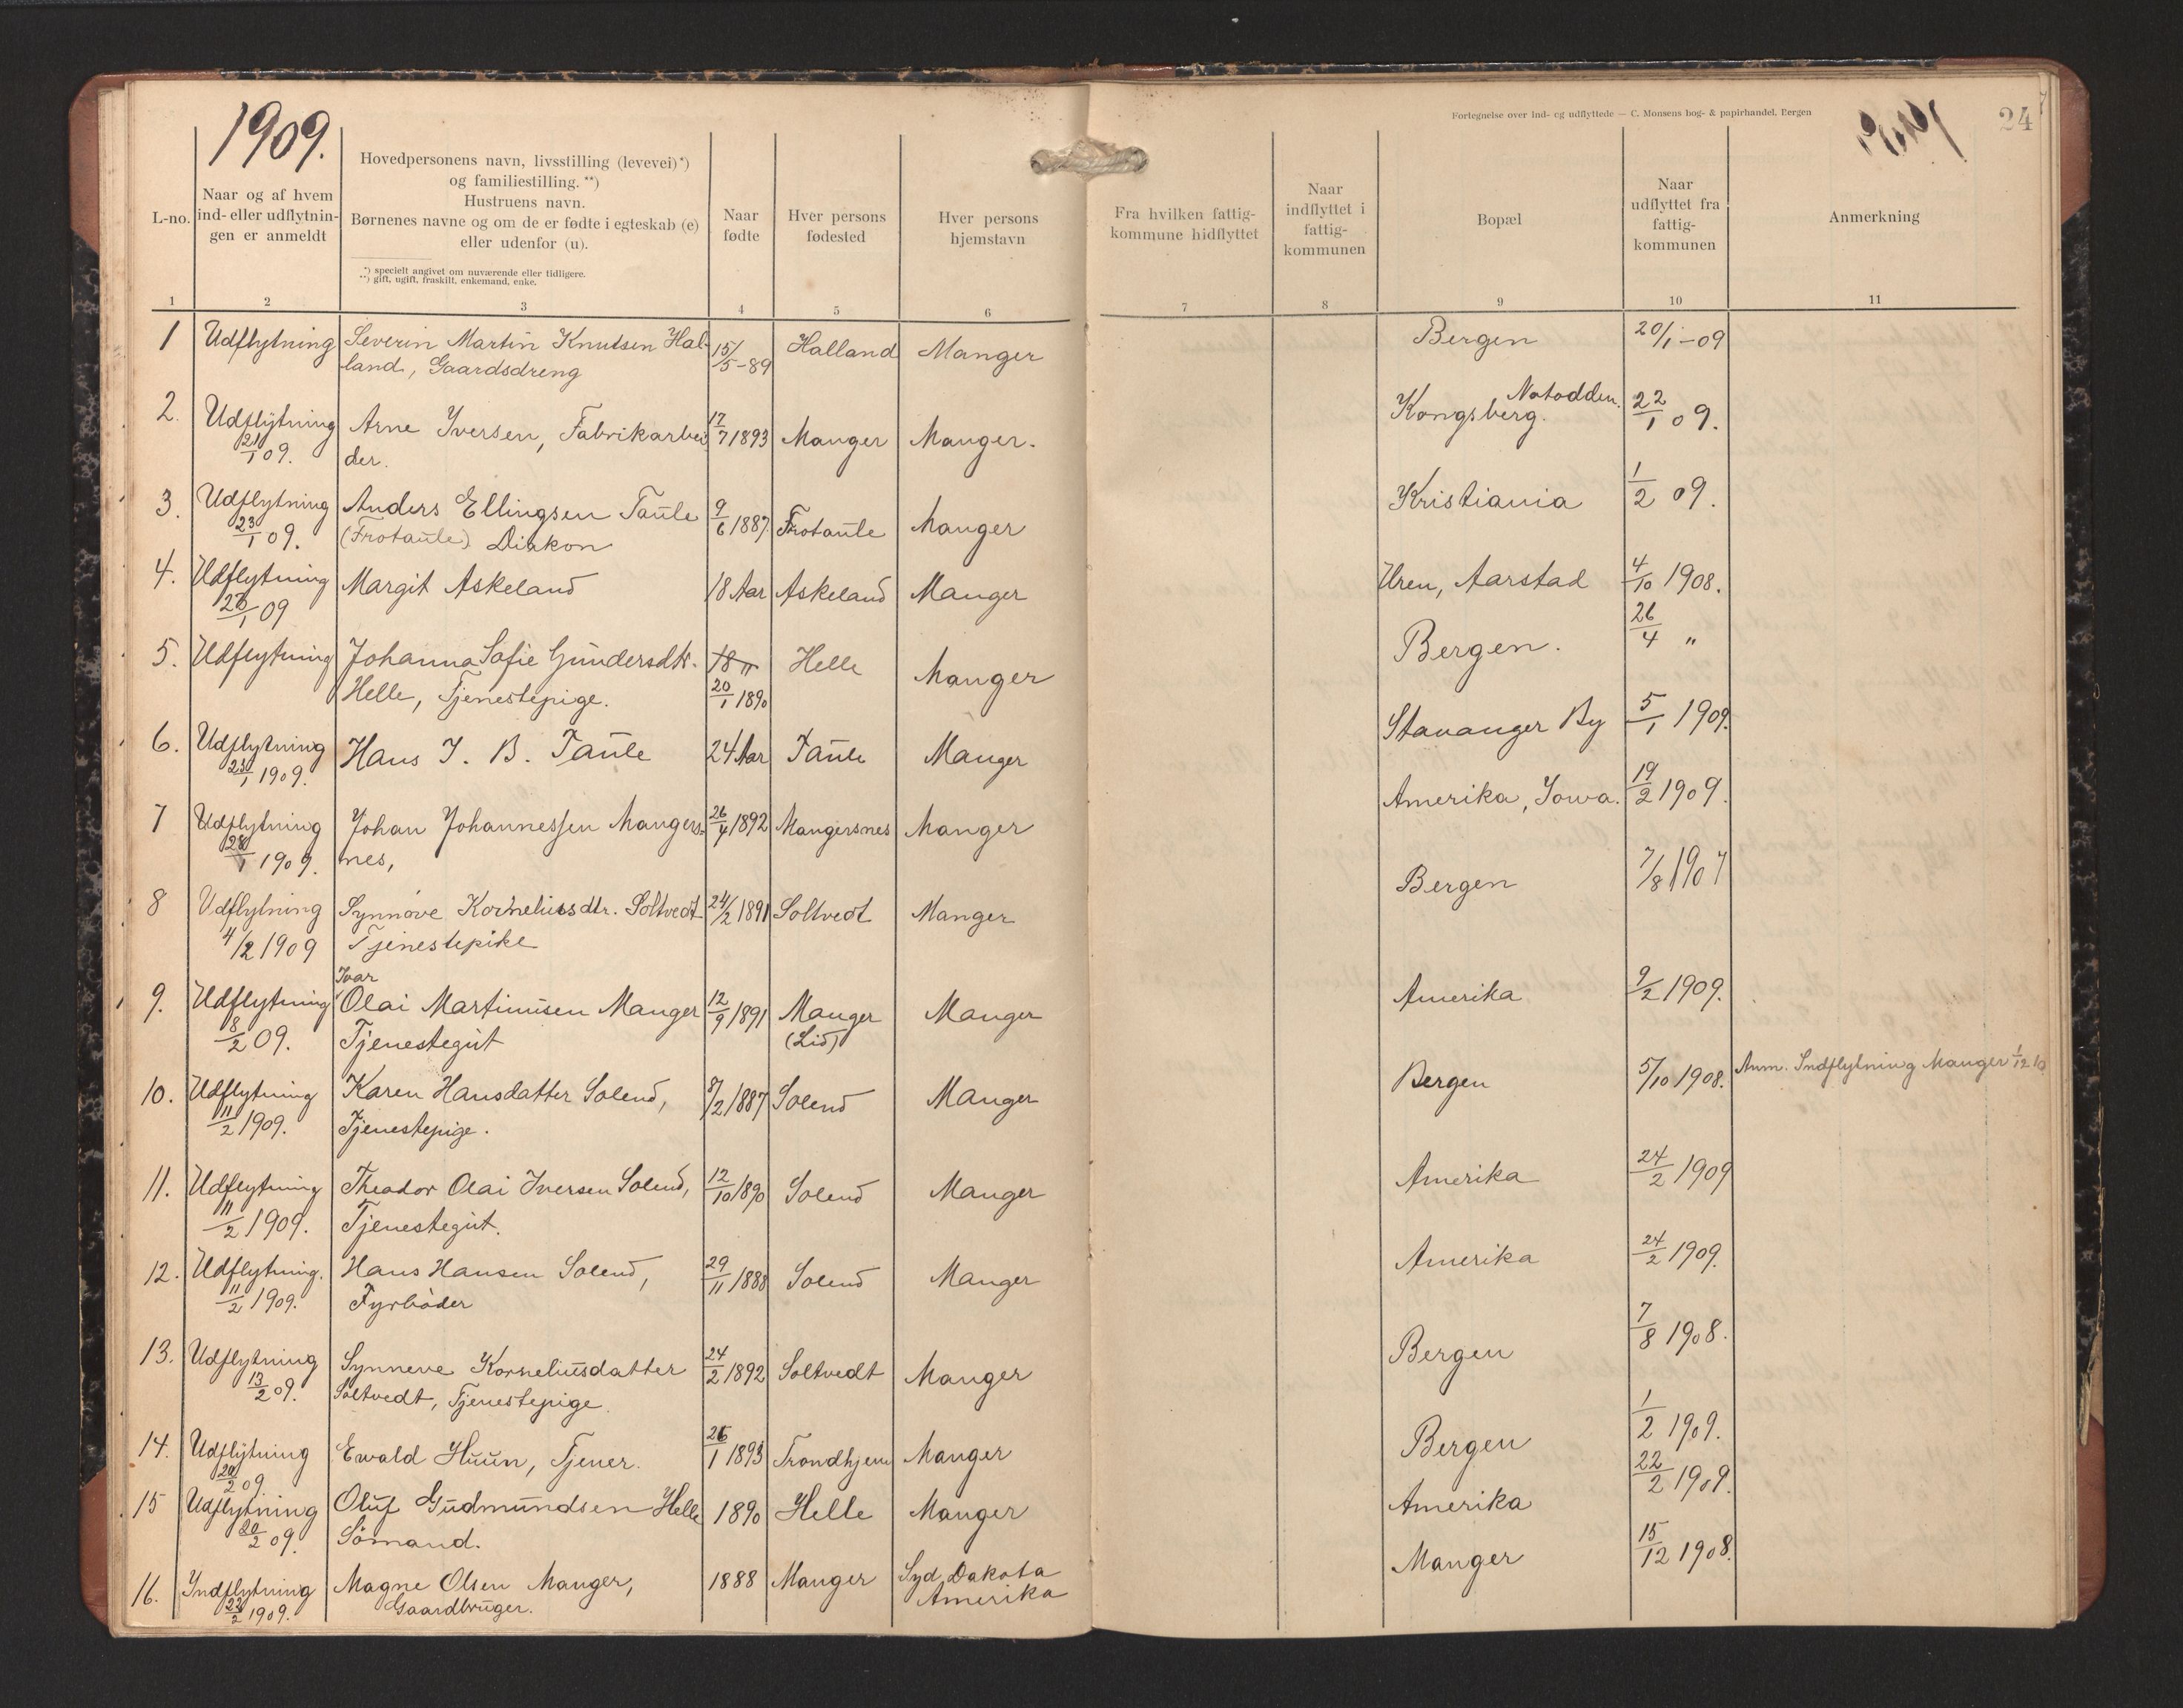 1909.
Fortegnelse over ind- og udflyttede — C. Monsens bog- & papirhandel, Bergen
24
L-no.
Naar og af hvem
ind- eller udflytnin-
gen er anmeldt
Hovedpersonens navn, livsstilling (levevei)*)
og familiestilling. **)
Hustruens navn.
Børnenes navne og om de er fødte i egteskab (e)
eller udenfor (u).
*) specielt angivet om nuværende eller tidligere.
**) gift, ugift, fraskilt, enkemand, enke.
Naar
fødte
Hver persons
fødested
Hver persons
hjemstavn
Fra hvilken fattig-
kommune hidflyttet
Naar
indflyttet i
fattig-
kommunen
Bopæl
Naar
udflyttet fra
fattig-
kommunen
Anmerkning
1 2 3 4 5 6 7 8 9 10 11
1 Udflytning Severin Martin Knutsen Hal- 15/5-89 Halland Manger Bergen 20/1-09
land, Gaardsdreng
2. Udflytning Arne Iversen, Fabrikarbei 17/7 1893 Manger Manger. Kongsberg. Notodden. 22/1 09.
21/1 09. der.
3. Udflytning Anders Ellingsen Taule 9/6 1887. Frotaule Manger Kristiania 1/2 09.
23/1 09. (Frotaule) Diakon
4. Udflytning Margit Askeland 18 Aar Askeland Manger Uren, Aarstad 4/10 1908.
26/1 09
5. Udflytning Johanna Sofie Gundersdtr. 18 " Helle Manger Bergen. 26/4 "
Helle, Tjenestepige. 20/1 1890
6. Udflytning Hans J. B. Taule 24 Aar Taule Manger Stavanger By 5/1 1909.
23/1 1909.
7 Udflytning Johan Johannessen Mangers- 26/4 1892 Mangersnes Manger Amerika, Iowa. 19/2 1909.
28/1 1909. nes,
8 Udflytning Synnøve Korneliusdtr. Soltvedt 24/2 1891 Soltvedt Manger Bergen 7/8 1907
4/2 1909 Tjenestepike
Ivar
9. Udflytning Olai Martinusen Manger 12/9 1891 Manger Manger Amerika 9/2 1909.
8/2 09. Tjenestegut (Lid)
10. Udflytning Karen Hansdatter Solend, 8/2 1887 Solend Manger Bergen 5/10 1908. Anm. Indflytning Manger 1/12 10
11/2 1909. Tjenestepige.
11. Udflytning Theodor Olai Iversen Solend, 12/10 1890 Solend Manger Amerika 24/2 1909
11/2 1909. Tjenestegut.
12. Udflytning. Hans Hansen Solend, 29/11 1888 Solend Manger Amerika 24/2 1909.
11/2 1909. Fyrbøder
13. Udflytning Synneve Korneliusdatter 24/2 1892 Soltvedt Manger Bergen 7/8 1908.
13/2 09. Soltvedt, Tjenestepige.
14. Udflytning Ewald Huun, Tjener. 26/1 1893 Trondhjem Manger Bergen 1/2 1909.
20/2 09.
15 Udflytning Oluf Gudmundsen Helle 1890 Helle Manger Amerika 22/2 1909.
20/2 09. Sømand.
16. Indflytning Magne Olsen Manger, 1888 Manger Syd Dakota Manger 15/12 1908.
22/2 1909. Gaardbruger. Amerika